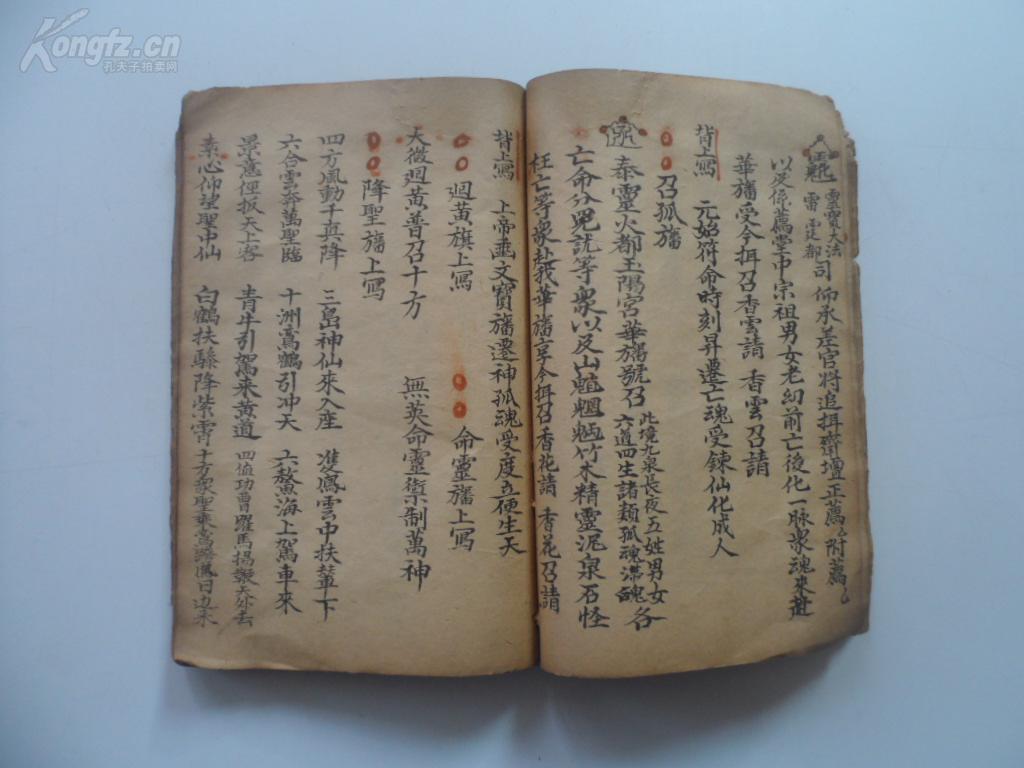 靈寶大法
雷霆都
司仰承差官將追攝齋壇正薦乙附薦乙
以及係薦堂中宗祖男女老幼前亡後化一脉眾魂來赴
華旛受今攝召香雲請 香雲召請
背上寫 元始符命時刻昇遷亡魂受鍊仙化成人
召孤旛
泰靈火都玉陽宮華旛號召
此境九泉長夜五姓男女
六道四生諸類孤魂滯魄
各
亡命分兇訧等眾以及山魈魍魎竹木精靈泥泉石怪
枉亡等眾赴我華旛享今攝召香花請 香花召請
背上寫 上帝垂文寶旛遷神孤魂受度立便生天
迴黃旗上寫 命靈旛上寫
大微迴黃普召十方 無英命靈衛制萬神
降聖旛上寫
四方風動千真降 三島神仙來入座 雙鳳雲中扶輦下
六合雲奔萬聖臨 十洲鸞鶴引冲天 六鰲海上駕車來
景意徑扳天上客 青牛引駕來黃道 四值功曹羅馬揚鞭天外去
素心仰望聖中仙 白鶴扶驂降紫霄 十方眾聖乘鸞
Kongfz.cn
孔夫子拍卖网